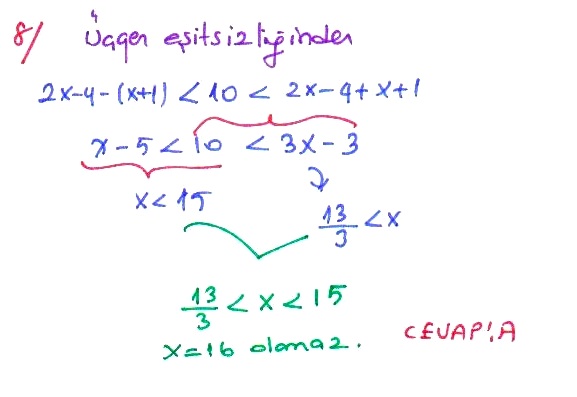 8/ Üçgen eşitsizliğinden
2x-4-(x+1) < 10 < 2x-4+x+1
x-5 < 10 < 3x-3
x < 15
13/3 < x
13/3 < x < 15
x=16 olamaz.
CEVAP:A